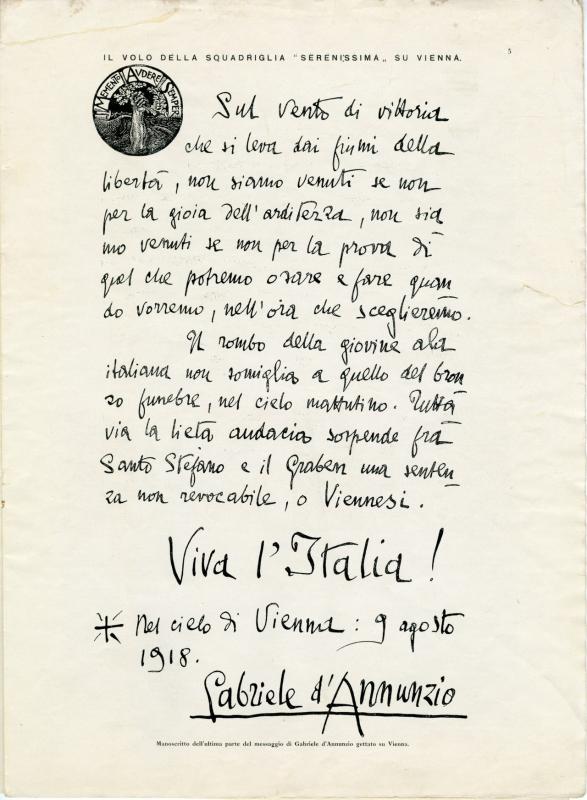 IL VOLO DELLA SQUADRIGLIA "SERENISSIMA„ SU VIENNA.
5
MEMENTO AVDERE SEMPER
Sul vento di vittoria
che si leva dai fiumi della
libertà, non siamo venuti se non
per la gioia dell'arditezza, non sia
mo venuti se non per la prova di
quel che potremo osare e fare quan
do vorremo, nell'ora che sceglieremo.
Il rombo della giovine ala
italiana non somiglia a quello del bron
zo funebre, nel cielo mattutino. Tutta
via la lieta audacia sospende fra
Santo Stefano e il Graben una senten
za non revocabile, o Viennesi.
Viva l'Italia!
Nel cielo di Vienna: 9 agosto
1918.
Gabriele d'Annunzio
Manoscritto dell'ultima parte del messaggio di Gabriele d'Annunzio gettato su Vienna.